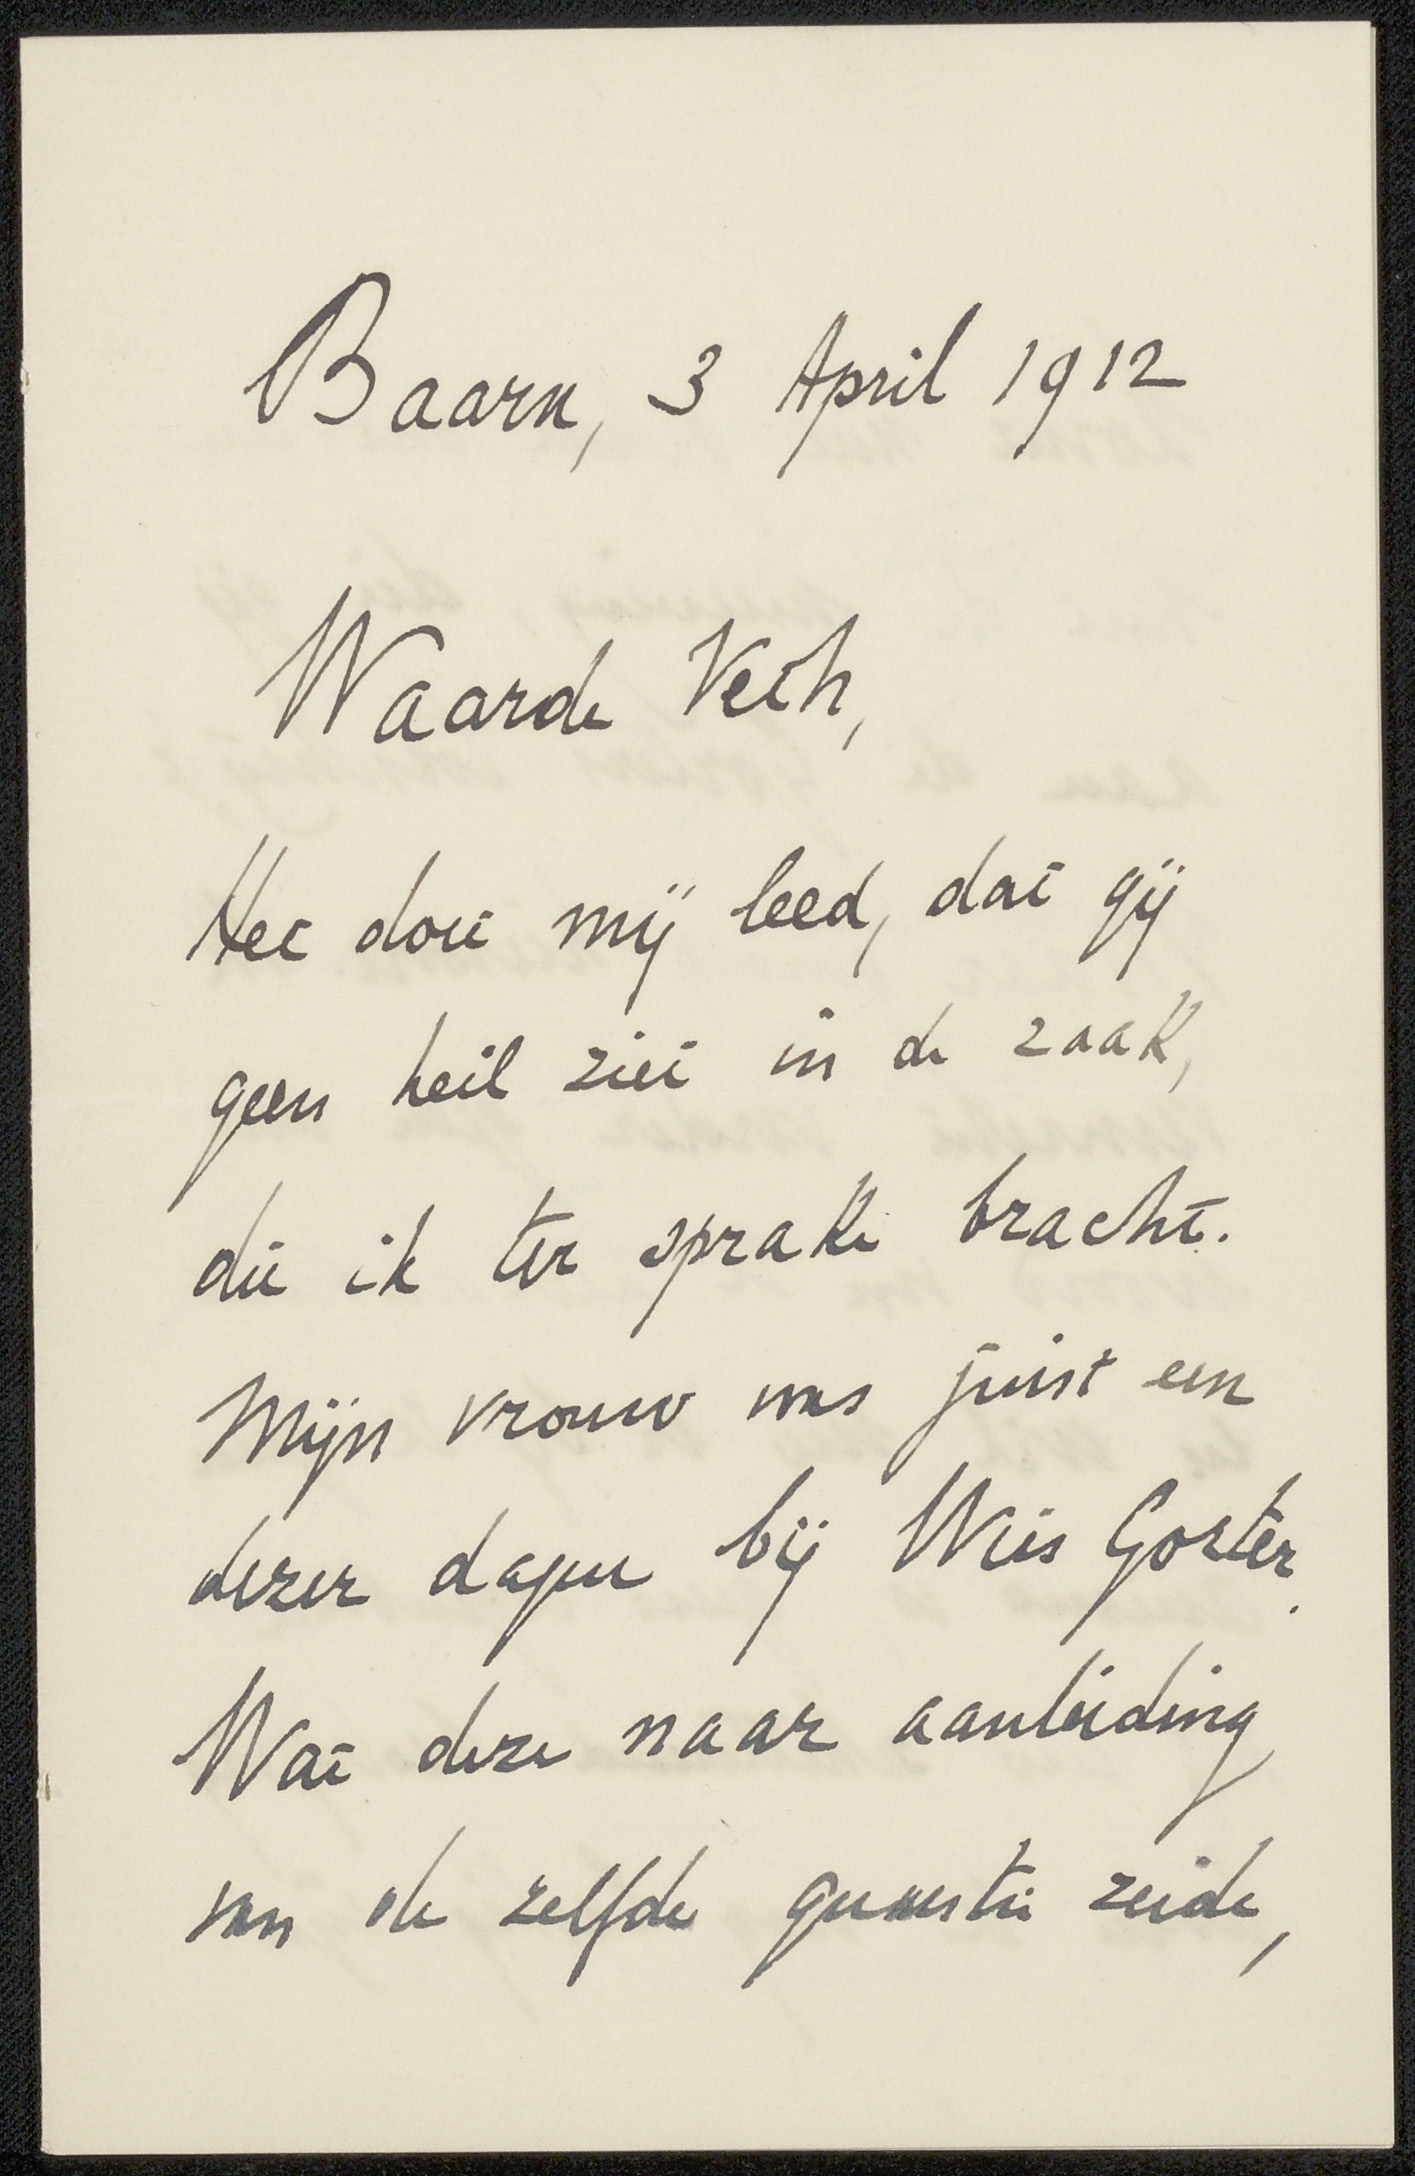 Baarn, 3 April 1912
Waarde Veth,
Het doet mij leed, dat gij
geen heil ziet in de zaak,
die ik ter sprake bracht.
Mijn vrouw was juist een
dezer dagen bij Wies Gorter.
Wat deze naar aanleiding
van de zelfde quaestie zeide,